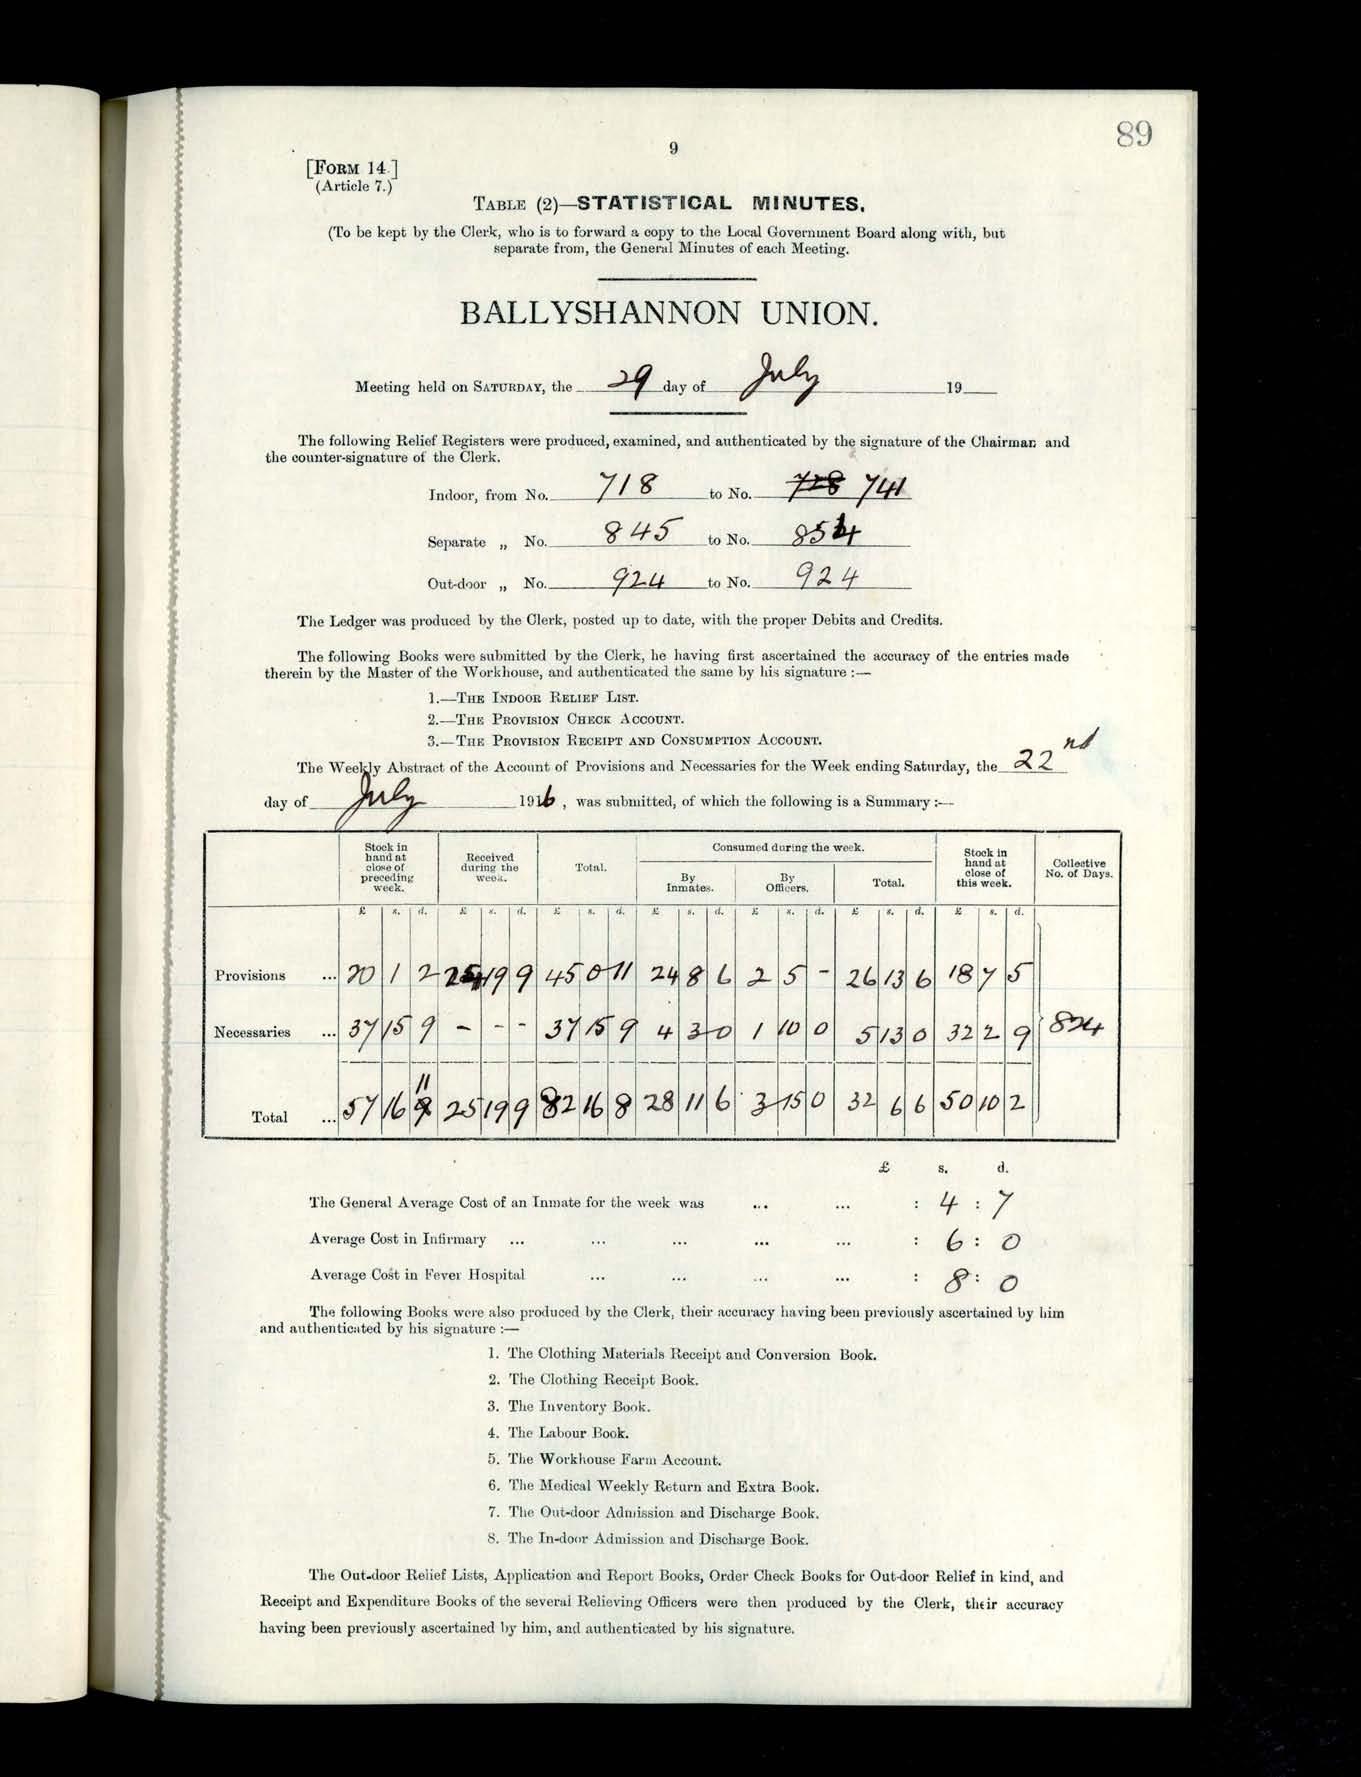 89
9
[FORM 14.]
(Article 7.)
TABLE (2)—STATISTICAL MINUTES.
(To be kept by the Clerk, who is to forward a copy to the Local Government Board along with, but
separate from, the General Minutes of each Meeting.
BALLYSHANNON UNION.
Meeting held on SATURDAY, the 29 day of July 19
The following Relief Registers were produced, examined, and authenticated by the signature of the Chairman and
the counter-signature of the Clerk.
Indoor, from No. 718 to No. 728 741
Separate „ No. 845 to No. 854
Out-door „ No. 924 to No. 924
The Ledger was produced by the Clerk, posted up to date, with the proper Debits and Credits.
The following Books were submitted by the Clerk, he having first ascertained the accuracy of the entries made
therein by the Master of the Workhouse, and authenticated the same by his signature :—
1.—THE INDOOR RELIEF LIST.
2.—THE PROVISION CHECK ACCOUNT.
3.—THE PROVISION RECEIPT AND CONSUMPTION ACCOUNT.
The Weekly Abstract of the Account of Provisions and Necessaries for the Week ending Saturday, the 22nd
day of July 1916, was submitted, of which the following is a Summary :—
Stock in hand at close of preceding week. Received during the week. Total. Consumed during the week. Stock in hand at close of this week. Collective No. of Days.
By Inmates. By Officers. Total.
£ s. d. £ s. d. £ s. d. £ s. d. £ s. d. £ s. d. £ s. d.
Provisions ... 20 1 2 24 19 9 45 0 11 24 8 6 2 5 - 26 13 6 18 7 5
Necessaries ... 37 15 9 - - - 37 15 9 4 3 0 1 10 0 5 13 0 32 2 9 824
Total ... 57 16 11 25 19 9 82 16 8 28 11 6 3 15 0 32 6 6 50 10 2
£ s. d.
The General Average Cost of an Inmate for the week was ... ... : 4 : 7
Average Cost in Infirmary ... ... ... ... ... : 6 : 0
Average Cost in Fever Hospital ... ... ... ... : 8 : 0
The following Books were also produced by the Clerk, their accuracy having been previously ascertained by him
and authenticated by his signature :—
1. The Clothing Materials Receipt and Conversion Book.
2. The Clothing Receipt Book.
3. The Inventory Book.
4. The Labour Book.
5. The Workhouse Farm Account.
6. The Medical Weekly Return and Extra Book.
7. The Out-door Admission and Discharge Book.
8. The In-door Admission and Discharge Book.
The Out-door Relief Lists, Application and Report Books, Order Check Books for Out-door Relief in kind, and
Receipt and Expenditure Books of the several Relieving Officers were then produced by the Clerk, their accuracy
having been previously ascertained by him, and authenticated by his signature.